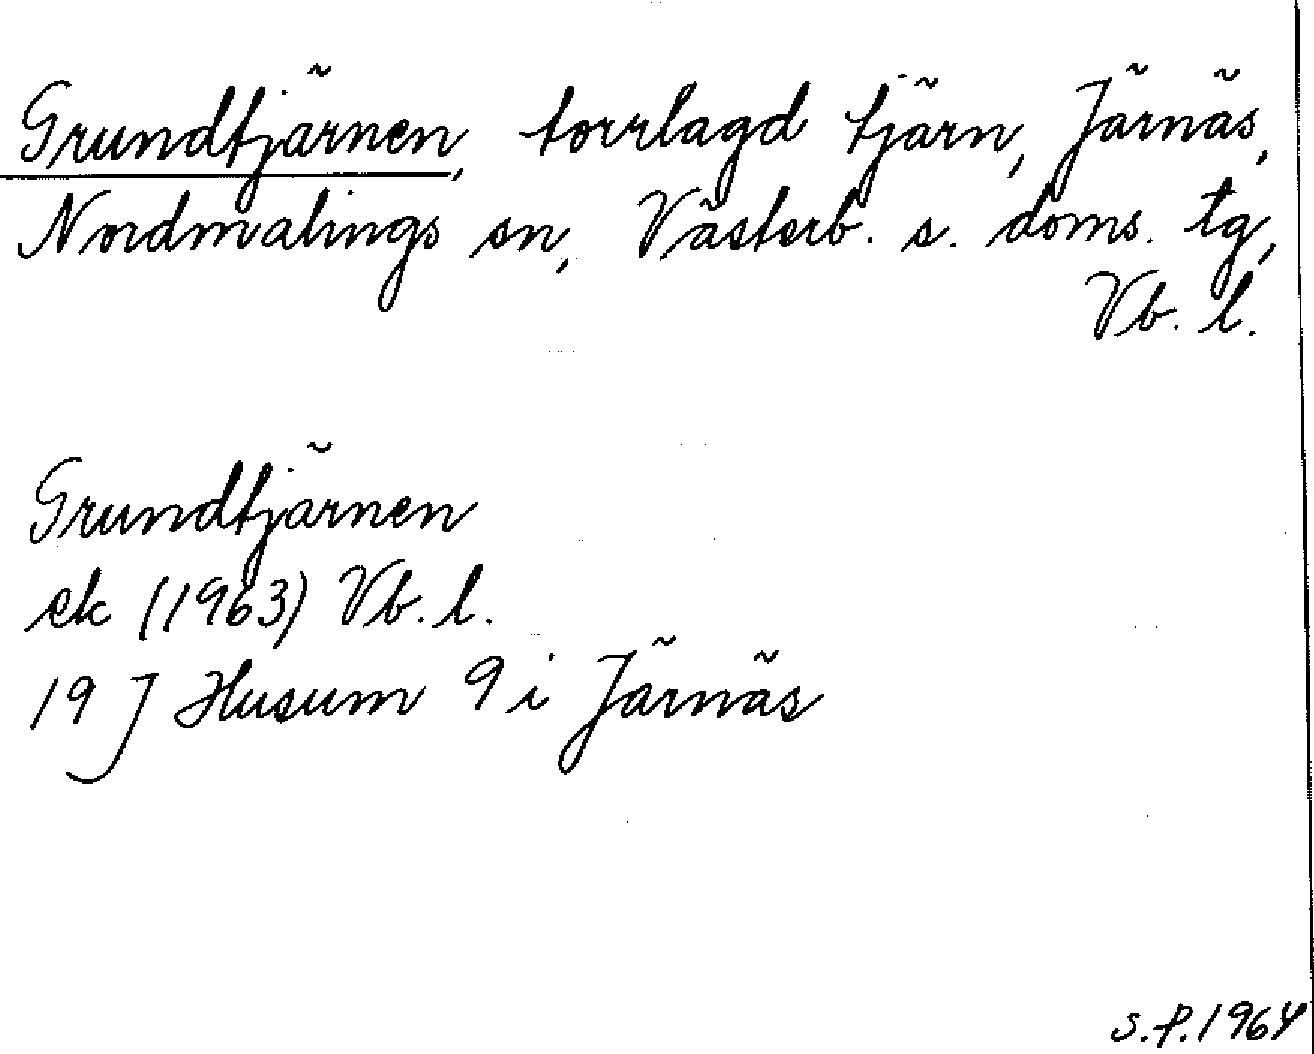 Grundtjärnen, torrlagd tjärn, Järnäs,
Nordmalings sn, Västerb. s. doms. tg,
Vb. l.
Grundtjärnen
ek (1963) Vb. l.
19 J Husum 9 i Järnäs
S.P. 1964